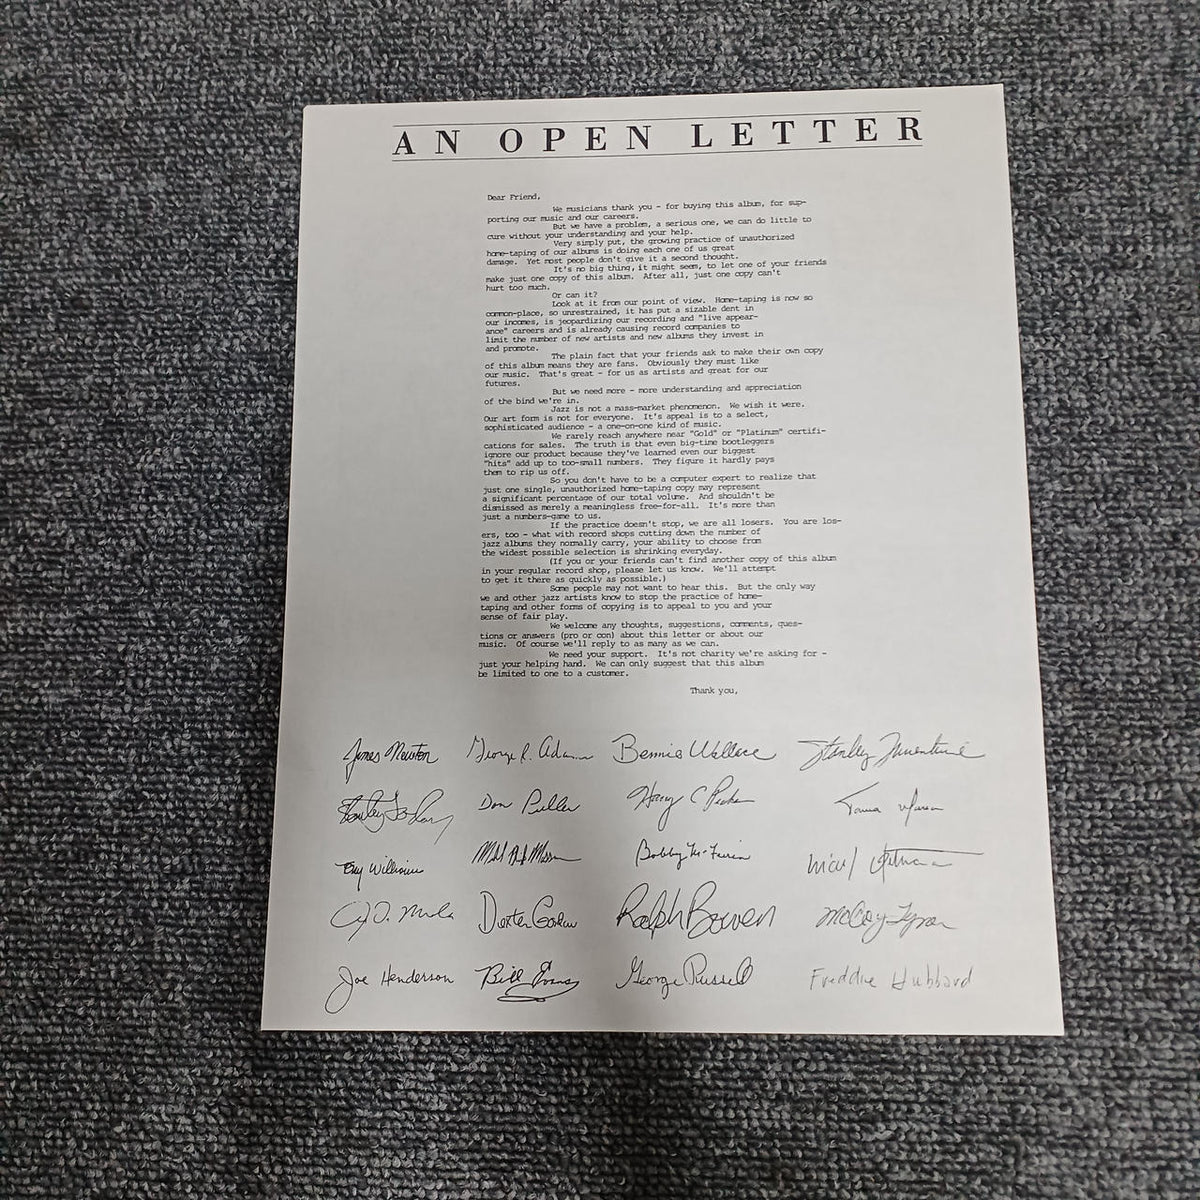 AN OPEN LETTER
Dear Friend,
We musicians thank you - for buying this album, for sup-
porting our music and our careers.
But we have a problem, a serious one, we can do little to
cure without your understanding and your help.
Very simply put, the growing practice of unauthorized
home-taping of our albums is doing each one of us great
damage. Yet most people don't give it a second thought.
It's no big thing, it might seem, to let one of your friends
make just one copy of this album. After all, just one copy can't
hurt too much.
Or can it?
Look at it from our point of view. Home-taping is now so
common-place, so unrestrained, it has put a sizable dent in
our incomes, is jeopardizing our recording and "live appear-
ance" careers and is already causing record companies to
limit the number of new artists and new albums they invest in
and promote.
The plain fact that your friends ask to make their own copy
of this album means they are fans. Obviously they must like
our music. That's great - for us as artists and great for our
futures.
But we need more - more understanding and appreciation
of the bind we're in.
Jazz is not a mass-market phenomenon. We wish it were.
Our art form is not for everyone. It's appeal is to a select,
sophisticated audience - a one-on-one kind of music.
We rarely reach anywhere near "Gold" or "Platinum" certifi-
cations for sales. The truth is that even big-time bootleggers
ignore our product because they've learned even our biggest
"hits" add up to too-small numbers. They figure it hardly pays
them to rip us off.
So you don't have to be a computer expert to realize that
just one single, unauthorized home-taping copy may represent
a significant percentage of our total volume. And shouldn't be
dismissed as merely a meaningless free-for-all. It's more than
just a numbers-game to us.
If the practice doesn't stop, we are all losers. You are los-
ers, too - what with record shops cutting down the number of
jazz albums they normally carry, your ability to choose from
the widest possible selection is shrinking everyday.
(If you or your friends can't find another copy of this album
in your regular record shop, please let us know. We'll attempt
to get it there as quickly as possible.)
Some people may not want to hear this. But the only way
we and other jazz artists know to stop the practice of home-
taping and other forms of copying is to appeal to you and your
sense of fair play.
We welcome any thoughts, suggestions, comments, ques-
tions or answers (pro or con) about this letter or about our
music. Of course we'll reply to as many as we can.
We need your support. It's not charity we're asking for -
just your helping hand. We can only suggest that this album
be limited to one to a customer.
Thank you,
James Newton George R. Adams Bennie Wallace Stanley Turrentine
Stanley Don Pullen
Tony Williams Bobby McFerrin
Dexter Gordon Ralph Bowen McCoy Tyner
Joe Henderson Bill Evans George Russell Freddie Hubbard